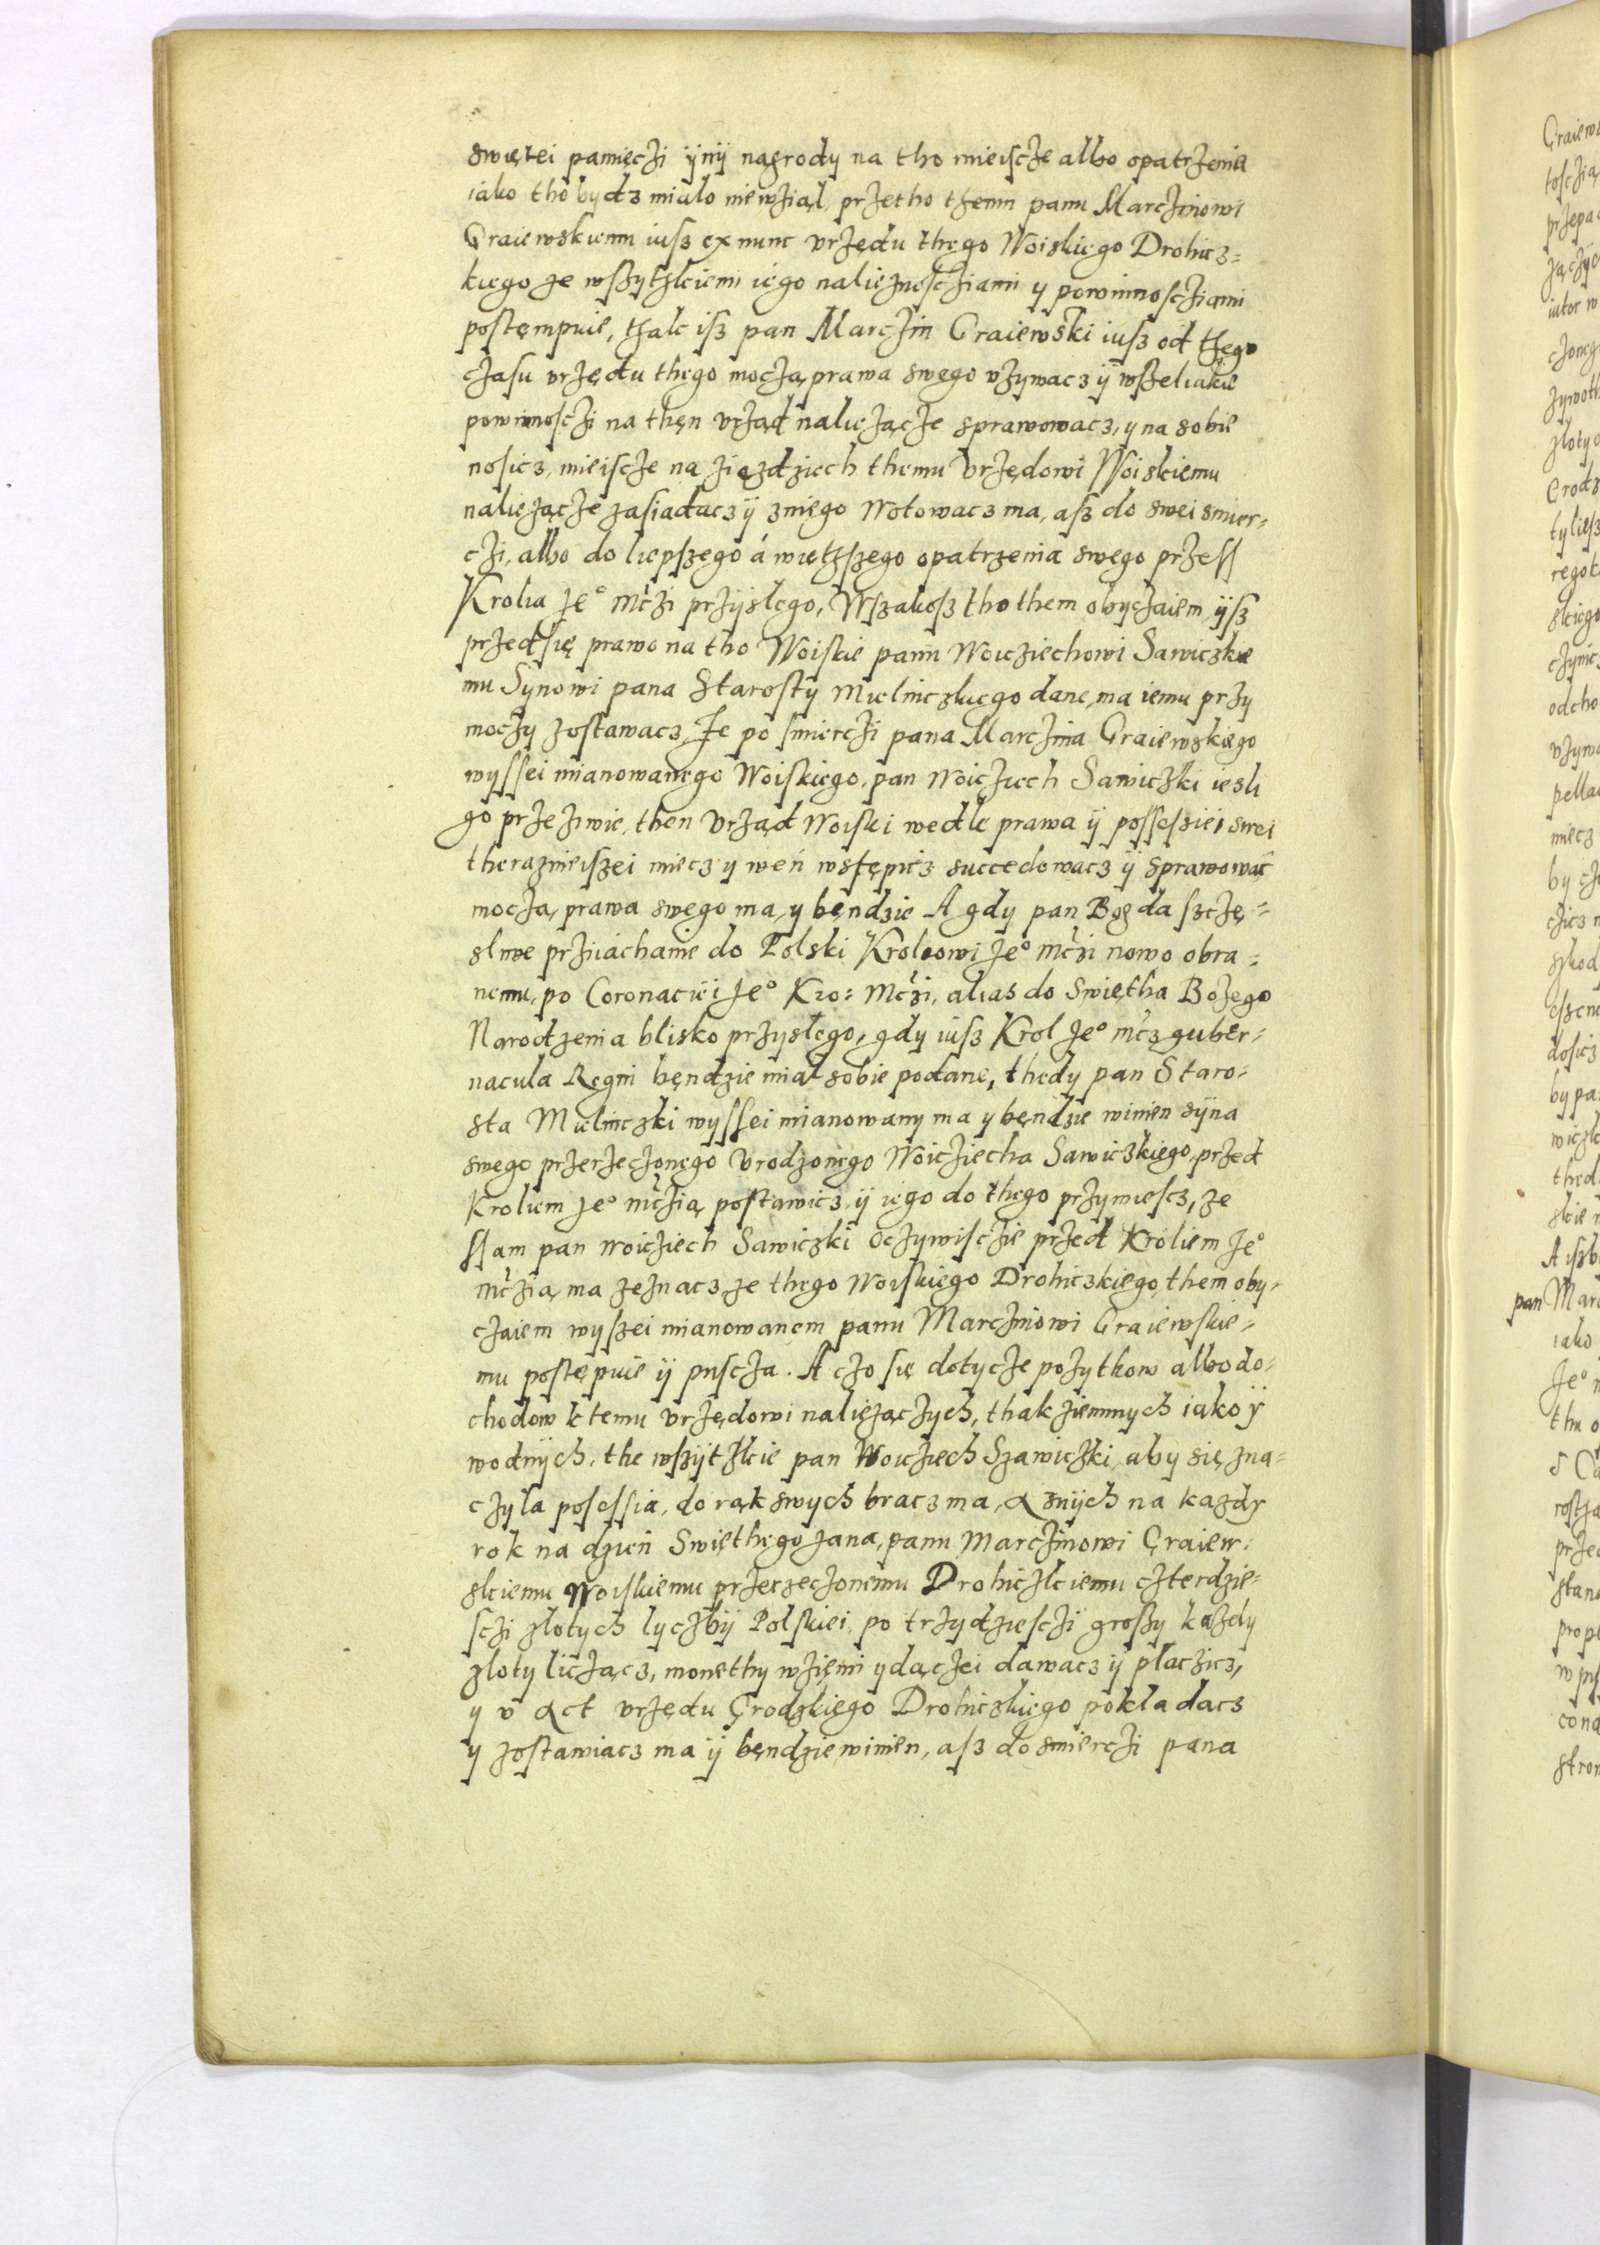 swiętei pamięcżi ÿnÿ nagrody na tho mieiscże albo opatrżenia
iako tho bydz mialo niewżiął, prżetho themu panu Marcżinowi
Graiewskiemu iusz ex nunc vrżędu thego Woiskiego Drohicz=
kiego że wszytżkiemi iego naliezżnoscżiami y powinnoscżiami
postęmpuie, thak isz pan Marcżin Graiewski iusz od thego
cżasu vrżędu thego mocżą prawa swego vżywacz ÿ wszeliakie
powinnoscżi na thęn vrżąd naliezżącże sprawowacz, y na sobie
nosicz, mieiscże na żiażdżiech themu Vrżędowi Woiskiemu
naliezżącże zasiadacz ÿ zniego Wotowacz ma, asz do swei smier=
cżi, albo do liepszego á więtższego opatrzenia swego prżess
Krolia Je° mczi prżÿszlego, Wszakosz tho them obycżaiem ÿsz
prżedsię prawo na tho Woiskie panu Woicziechowi Sawiczkie
mu Synowi pana Starosty Mielniczkiego dane, ma iemu prży
mocży zostawacz, Że po smiercżi pana Marcżina Graiewskiego
wyssei mianowanego Woiskiego, pan Woicżiech Sawicżki iesli
go prżeżiwie, then Vrżąd Woiski wedle prawa ÿ possessiei swei
theraznieiszei miecz y weń wstępicz succedowacz ÿ sprawować
mocżą prawa swego ma y będzie A gdy pan Bog da szcżę=
sliwe prżiiáchanie do Polski Krolowi Je° mczi nowo obra=
nemu, po Coronaciei Je° Kro: Mczi, alias do Swiętha Bożego
Narodzenia blisko prżyszlego, gdy iusz Krol Je° mcz guber=
nacula Regni będzie miał sobie podane, thedy pan Staro=
sta Mielniczki wyssei mianowany ma y będzie winien sÿna
swego prżerżecżonego Vrodzonego Woicżiecha Sawiczkiego, przed
Kroliem Je° mcżią postawicz, ÿ iego do thego przywiescz, że
ssam pan Woicżiech Sawiczki ocżywiscżie prżed Króliem Je°
mcżią, ma zeznacz, że thego Woiskiego Drohiczkiego, them oby=
cżaiem wyszei mianowanem panu Marcżinowi Graiewskie=
mu postępuie ÿ pusczża. A cżo się dotycże pożytkow albo do=
chodow k temu vrżędowi naliezżącżych, thak ziemnych iako ÿ
wodnÿch, the wszÿtżkie pan Woicżiech Szawicżki, aby się zna=
cżyla posessia, do rąk swych bracz ma, a znÿch na kazdy
rok na dzień Swięthego Jana, panu Marcżinowi Graiew=
skiemu Woiskiemu prżerzecżonemu Drohicżkiemu cżterdzie=
scżi zlotych lycżbÿ Polskiei, po trżydziescżi groszy każdy
zloty licżącz, monethy wżięmi ydącżei dawacz ÿ placzicz,
y v Act vrżędu Grodzkiego Drohiczkiego pokladacz
y zostawiacz ma ÿ będzie winien, asz do smiercżi pana